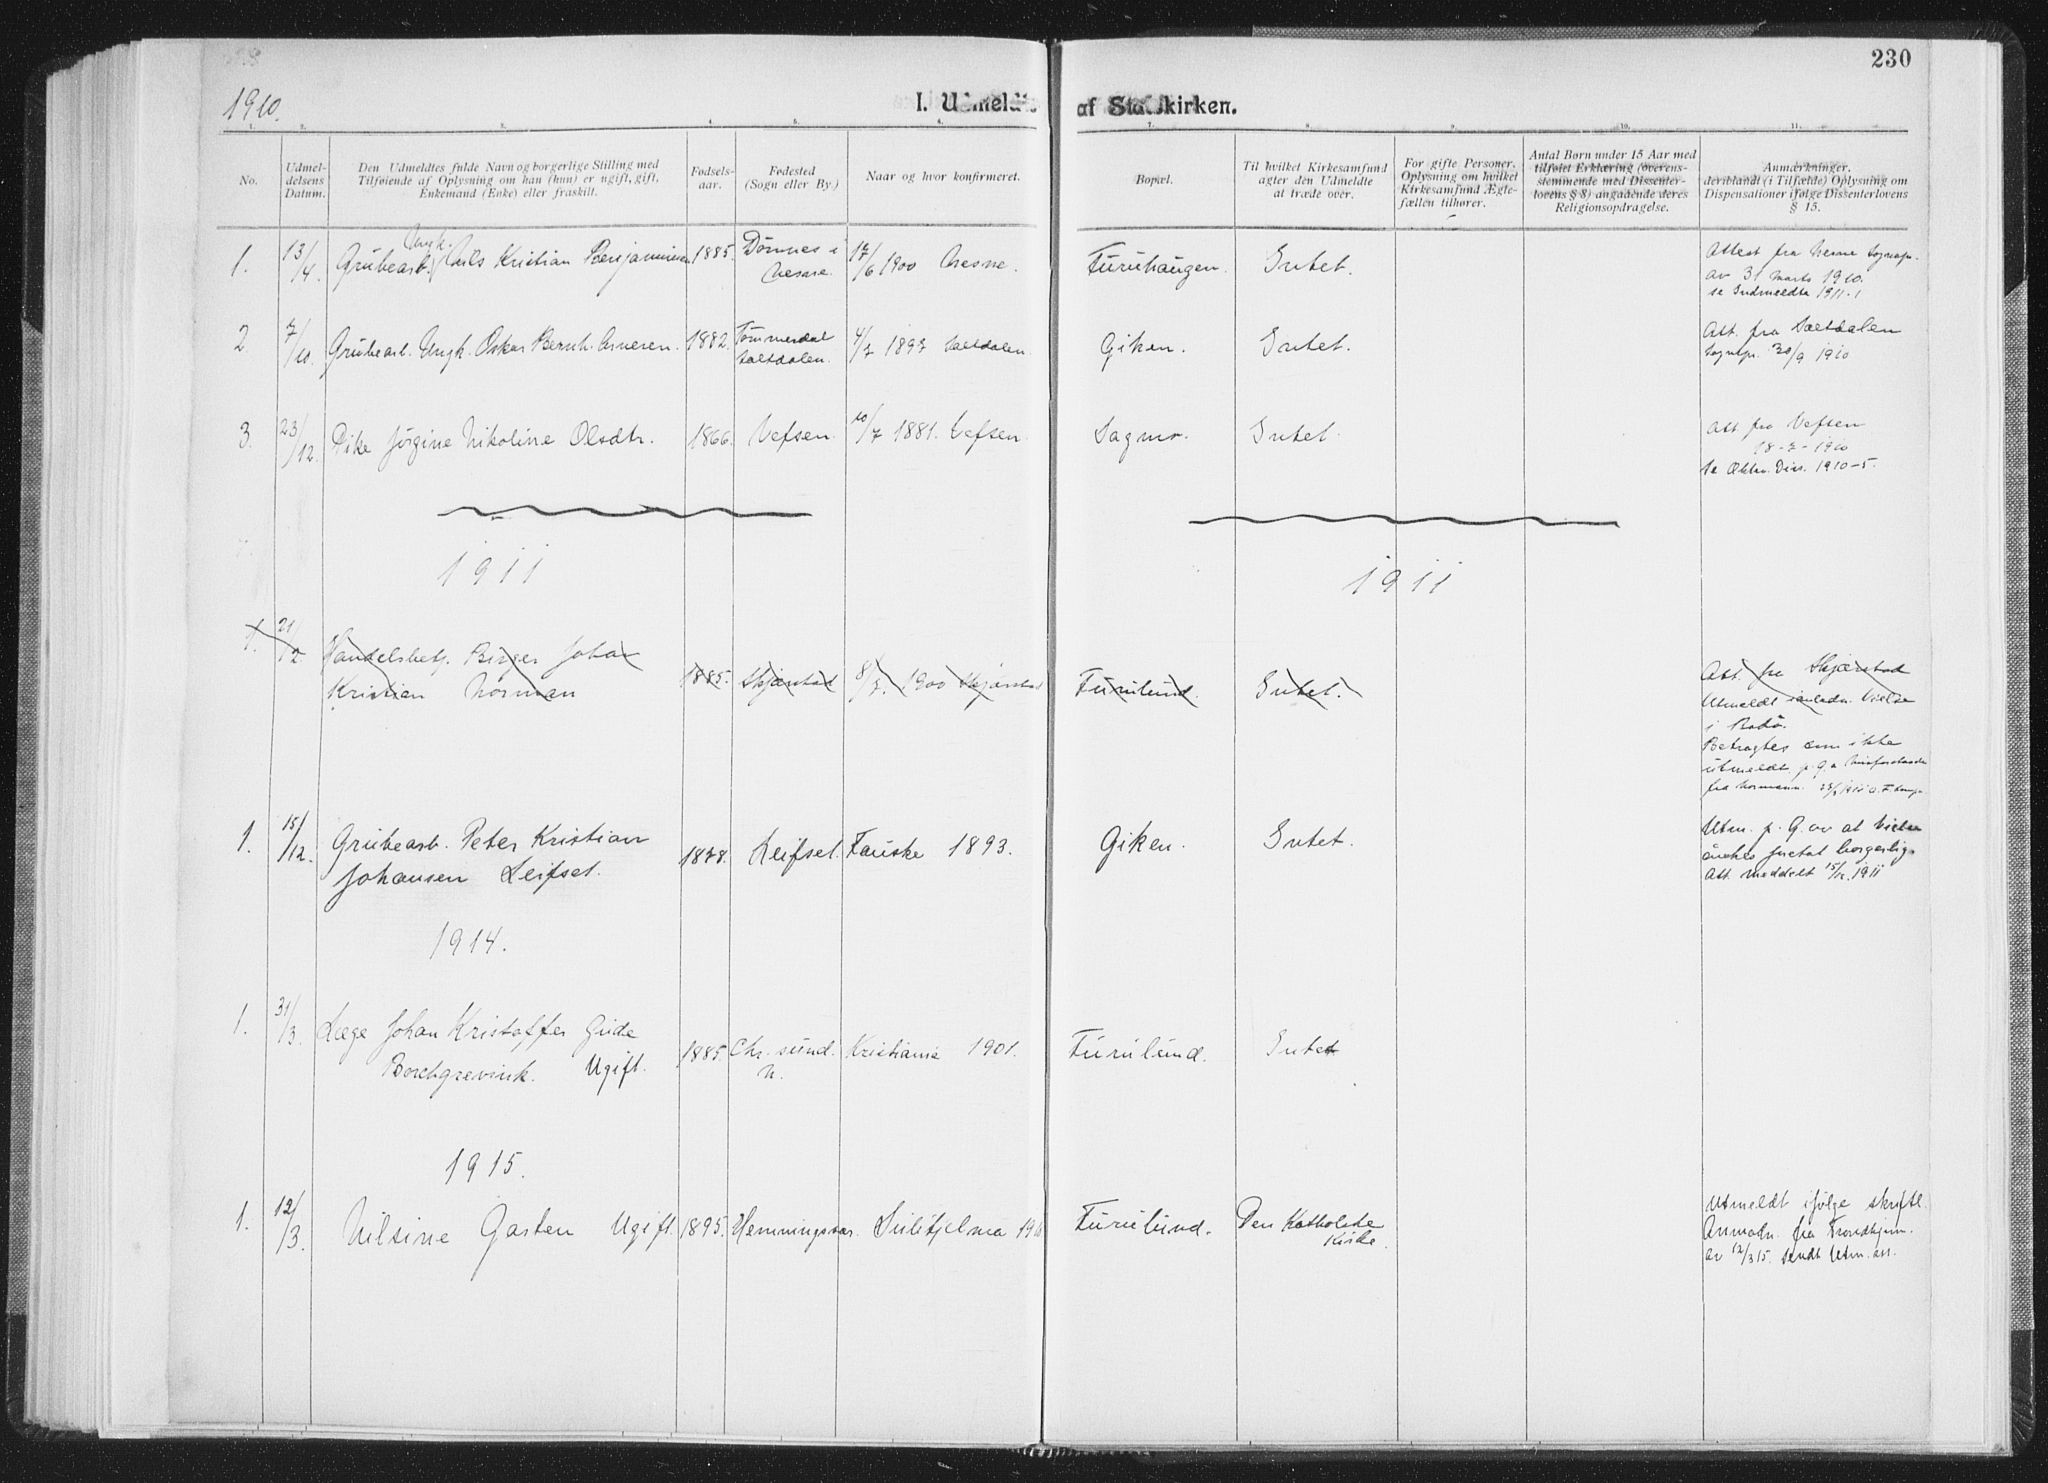 230
1910.
I. Udmeldte af Statskirken.
1. 2. 3. 4. 5. 6. 7. 8. 9. 10. 11.
No.
Udmel-
delsens
Datum.
Den Udmeldtes fulde Navn og borgerlige Stilling med
Tilføiende af Oplysning om han (hun) er ugift, gift,
Enkemand (Enke) eller fraskilt.
Fødsels-
aar.
Fødested
(Sogn eller By.)
Naar og hvor konfirmeret.
Bopæl.
Til hvilket Kirkesamfund
agter den Udmeldte
at træde over.
For gifte Personer,
Oplysning om hvilket
Kirkesamfund Ægte-
fællen tilhører.
Antal Børn under 15 Aar med
tilføiet Erklæring (overens-
stemmende med Dissenter-
lovens § 8) angaaende deres
Religionsopdragelse.
Anmærkninger,
deriblandt (i Tilfælde) Oplysning om
Dispensationer ifølge Dissenterlovens
§ 15.
1. 13/4. Grubearb. Ungk. Nils Kristian Benjaminsen 1885. Dønnes i Nesne. 17/6 1900 Nesne. Furuhaugen. Intet.
Attest fra Nesne Sognepr.
av 31 Marts 1910.
se Indmeldte 1911-1
2 7/10. Grubearb. Ungk. Oskar Bernh. 1882. Tømmerdal Saltdalen. 4/7 1897 Saltdalen. Giken. Intet.
Att. fra Saltdalen
Sognepr. 30/9 1910
3. 23/12. Pike Jørgine Nikoline Olsdtr. 1866. Vefsen. 10/7 1881. Vefsen. Sagmo. Intet.
Att. fra Vefsen
18-7-1910
se Diss. 1910-5.
1911
1911
1. 21/2 Handelsbetj. Birger Johan
Kristian Norman 1885. Skjærstad 8/7. 1900 Skjærstad Furulund. Intet.
Att. fra Skjærstad
Utmeldt Vielse
i Bodø.
Betragtes som ikke
utmeldt p. G. a
fra Normann.
1. 15/12. Grubearb. Peter Kristian
Johansen Leifset. 1878. Leifset. Fauske 1893. Giken. Intet.
Utm. p. G. av at Vielse
ønskes foretat borgerlig.
Att. meddelt 15/12. 1911
1914.
1. 31/3. Læge Johan Kristoffer Gude
Borchgrevink. Ugift. 1885. Chr.sund. N. Kristiania 1901. Furulund. Intet
1915.
1. 12/3. Nilsine Garten Ugift. 1895. Hemningsvær. Sulitjelma Furulund. Den Katholske
Kirke.
Utmeldt ifølge skriftl.
Anmodn. fra Trondhjem.
av 12/3 15. Sendt Utm. att.